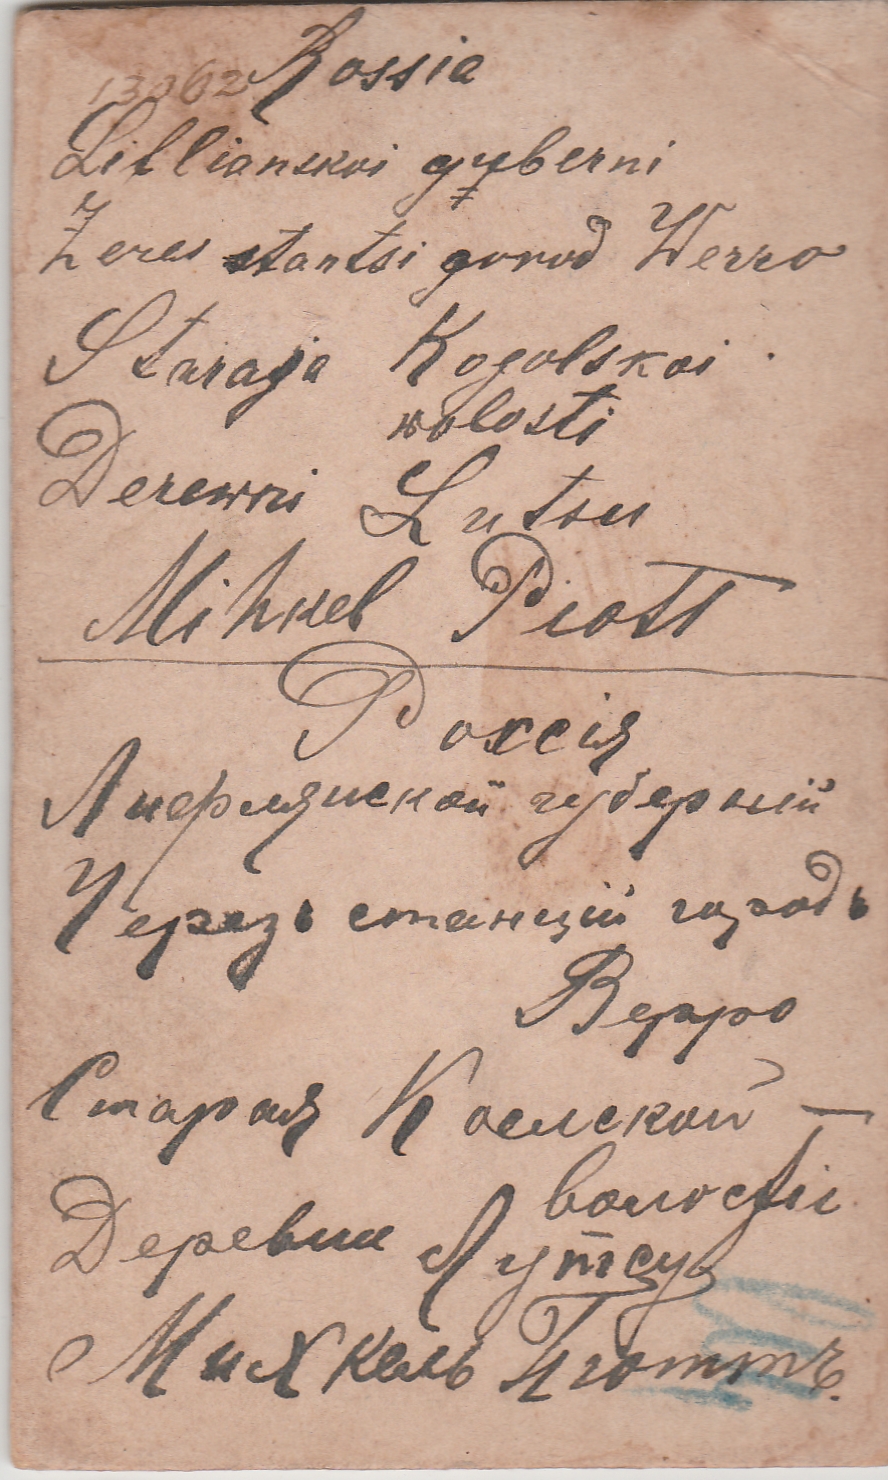 13062
Rossia
Liflianskoi guberni
Zeres stantsi gorod Werro
Staraja Kogolskoi
wolosti
Derewni Lutsu
Mihkel Piott
Россія
Лифлянской губерній
Черезъ станцій городъ
Верро
Старая Коелской —
волостіи
Деревни Лутсу
Михкель Пюттъ.